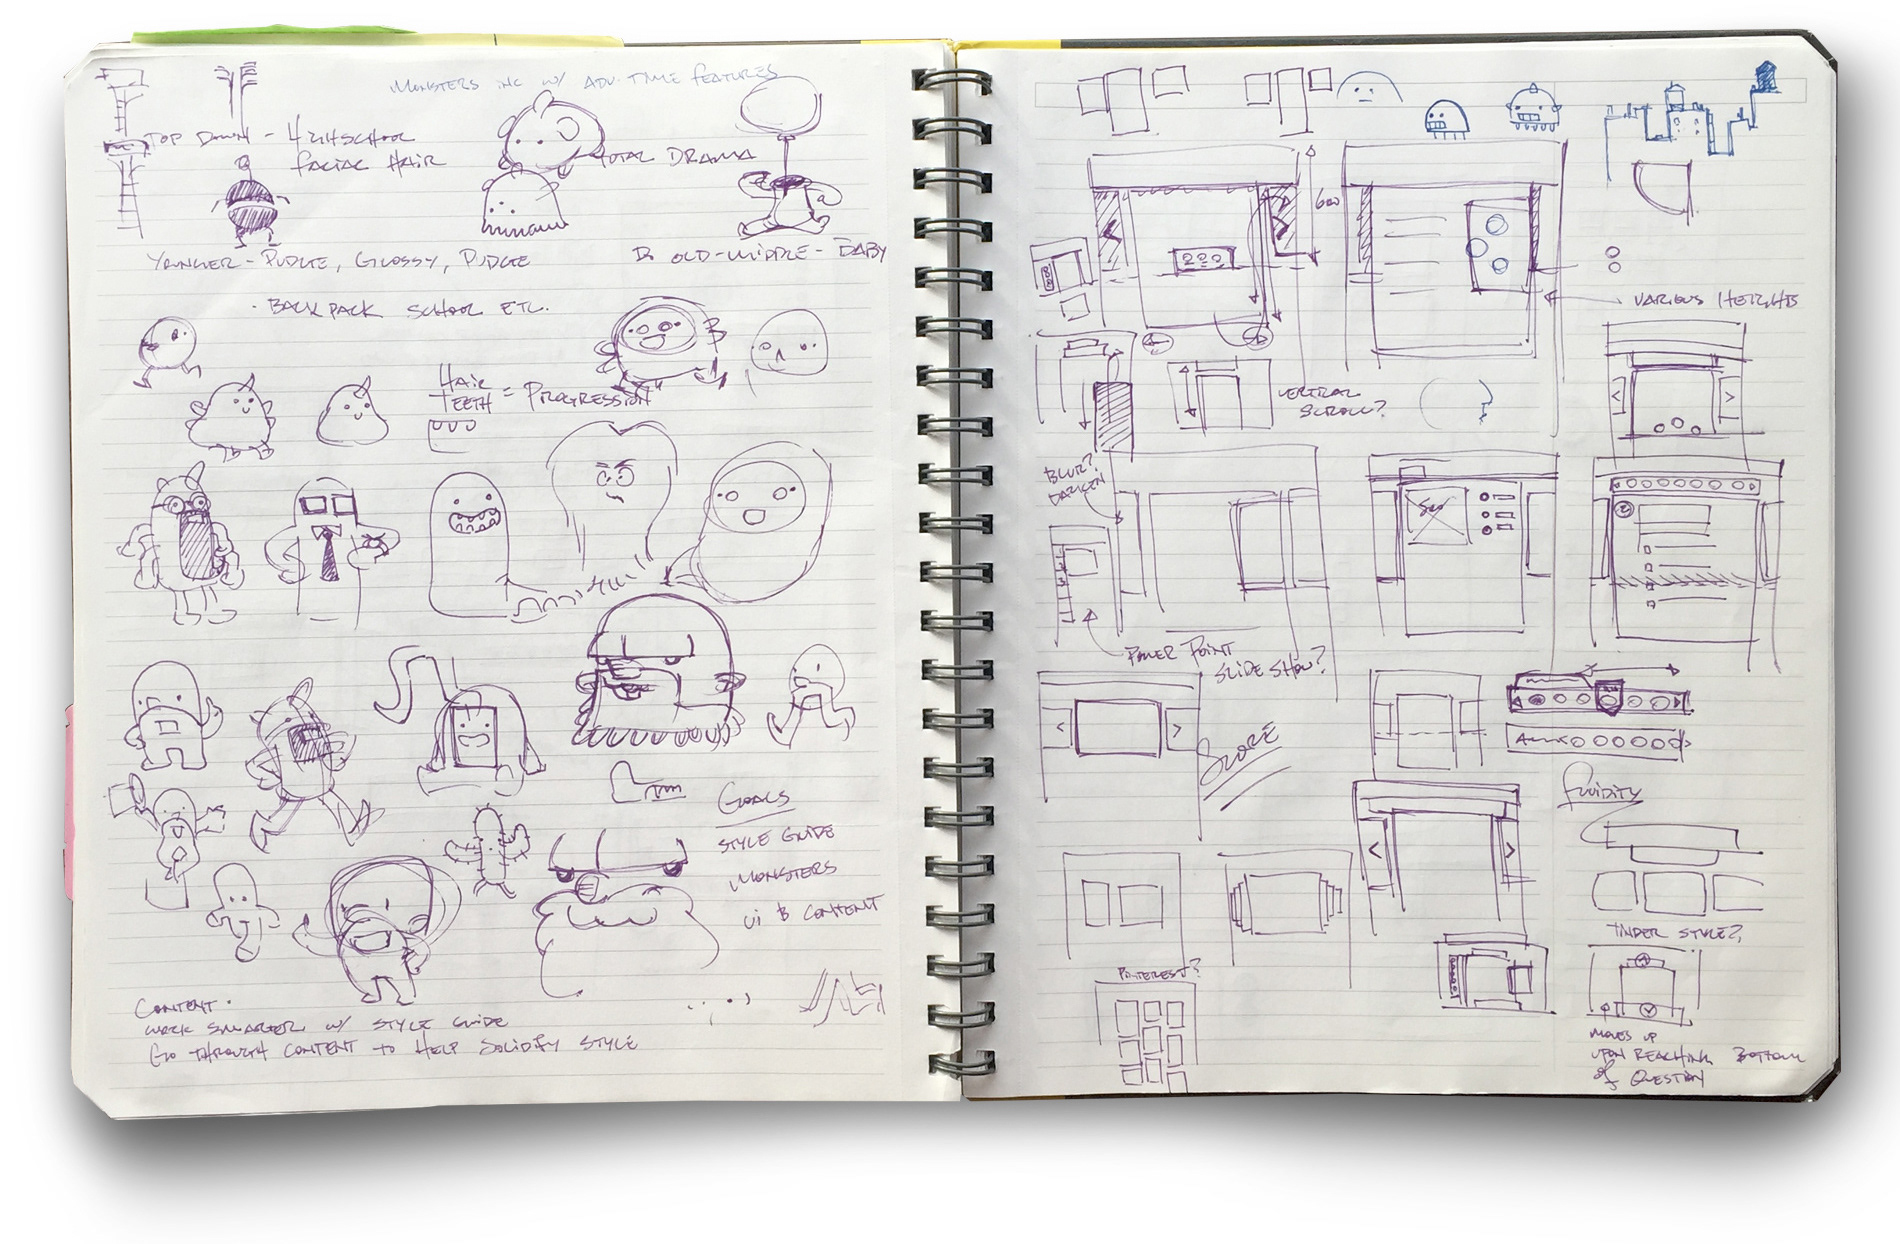 MONSTERS INC W/ ADV. TIME FEATURES
TOP DOWN - HIGHSCHOOL
FACIAL HAIR
TOTAL DRAMA
YOUNGER - PUDGE, GLOSSY, PUDGE
OLD - MIDDLE - BABY
· BACKPACK SCHOOL ETC.
HAIR
TEETH = PROGRESSION
GOALS
STYLE GUIDE
MONSTERS
UI & CONTENT
CONTENT ·
WORK SMARTER W/ STYLE GUIDE
GO THROUGH CONTENT TO HELP SOLIDIFY STYLE
600
VARIOUS HEIGHTS
VERTICAL
SCROLL?
BLUR?
DARKEN
POWER POINT
SLIDE SHOW?
SCORE
fluidity
TINDER STYLE?
PINTEREST?
MOVES UP
UPON REACHING BOTTOM
of QUESTION